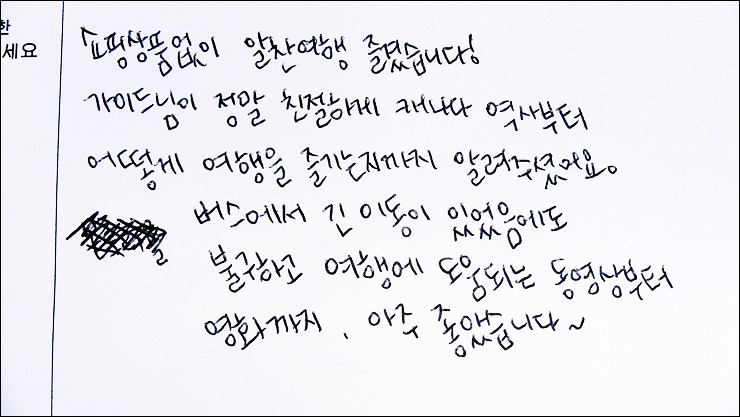 한
세요
쇼핑상품없이 알찬여행 즐겼습니다!
가이드님이 정말 친절하게 캐나다 역사부터
어떻게 여행을 즐기는지까지 알려주셨어요.
버스에서 긴 이동이 있었음에도
불구하고 여행에 도움되는 동영상부터
영화까지, 아주 좋았습니다~